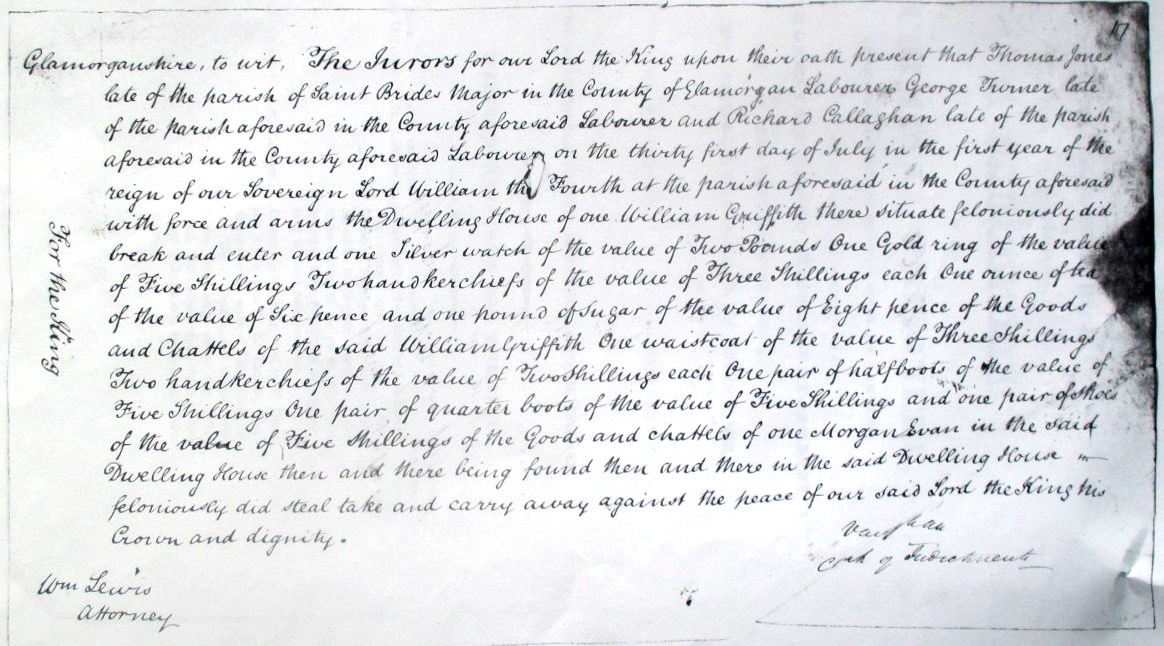 17
Glamorganshire, to wit, The Jurors for our Lord the King upon their oath present that Thomas Jones
late of the parish of Saint Brides Major in the County of Glamorgan Labourer George Turner late
of the parish aforesaid in the County aforesaid Labourer and Richard Callaghan late of the parish
aforesaid in the County aforesaid Labourer on the thirty first day of July in the first year of the
reign of our Sovereign Lord William the Fourth at the parish aforesaid in the County aforesaid
with force and arms the Dwelling House of one William Griffith there situate feloniously did
break and enter and one Silver watch of the value of Two Pounds One Gold ring of the value
of Five Shillings Two handkerchiefs of the value of Three Shillings each One ounce of tea
of the value of Six pence and one pound of Sugar of the value of Eight pence of the Goods
and Chattels of the said William Griffith One waistcoat of the value of Three Shillings
Two handkerchiefs of the value of Two Shillings each One pair of half boots of the value of
Five Shillings One pair of quarter boots of the value of Five Shillings and one pair of shoes
of the value of Five Shillings of the Goods and chattels of one Morgan Evan in the said
Dwelling House then and there being found then and there in the said Dwelling House
feloniously did steal take and carry away against the peace of our said Lord the King his
Crown and dignity.
For the King
Clerk of Indictments
Wm Lewis
Attorney